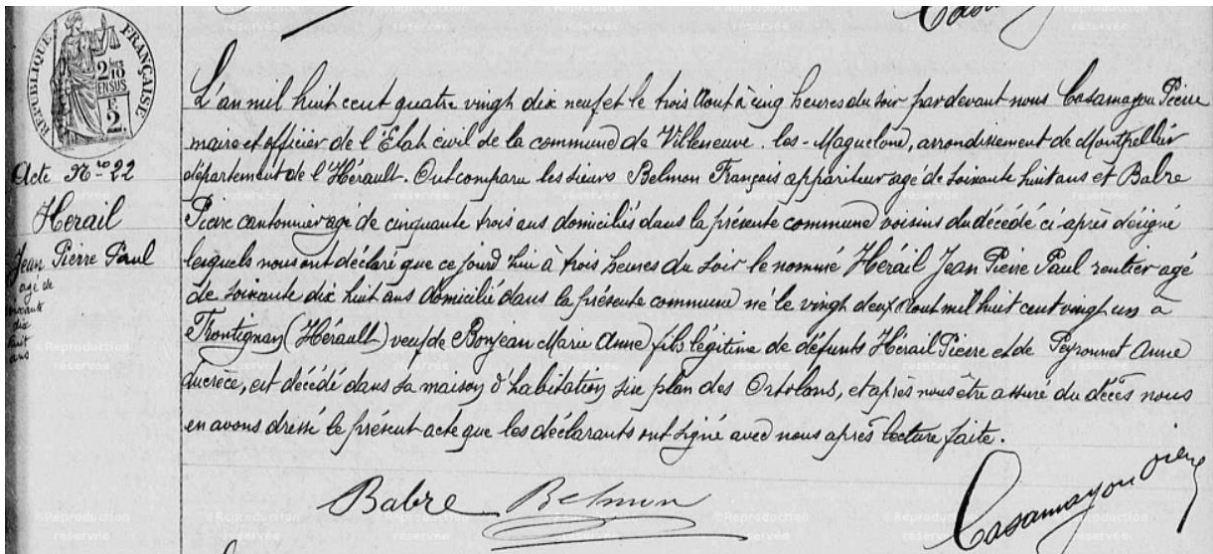 Casamayou
RÉPUBLIQUE FRANÇAISE
2/10
EN SUS
L'an mil huit cent quatre vingt dix neuf et le trois Aout à cinq heures du soir par devant nous Casamayou Pierre
maire et officier de l'État civil de la commune de Villeneuve-les-Maguelone, arrondissement de Montpellier
Acte No 22
département de l'Hérault. Ont comparu les sieurs Belmon François appariteur agé de soixante huit ans et Babre
Herail
Pierre cantonnier agé de cinquante trois ans domiciliés dans la présente commune voisins du décédé ci-après désigné
Jean Pierre Paul
lesquels nous ont déclaré que ce jourd'hui à trois heures du soir le nommé Hérail Jean Pierre Paul rentier agé
agé de
soixante
dix
huit
ans
de soixante dix huit ans domicilié dans la présente commune né le vingt deux Aout mil huit cent vingt un à
Frontignan (Hérault) veuf de Bonjean Marie Anne fils légitime de défunts Hérail Pierre et de Peyronnet Anne
Lucrèce, est décédé dans sa maison d'habitation sise plan des Ortolans, et après nous être assuré du décès nous
en avons dressé le présent acte que les déclarants ont signé avec nous après lecture faite.
Babre Belmon
Casamayou Pierre
©Reproduction réservée